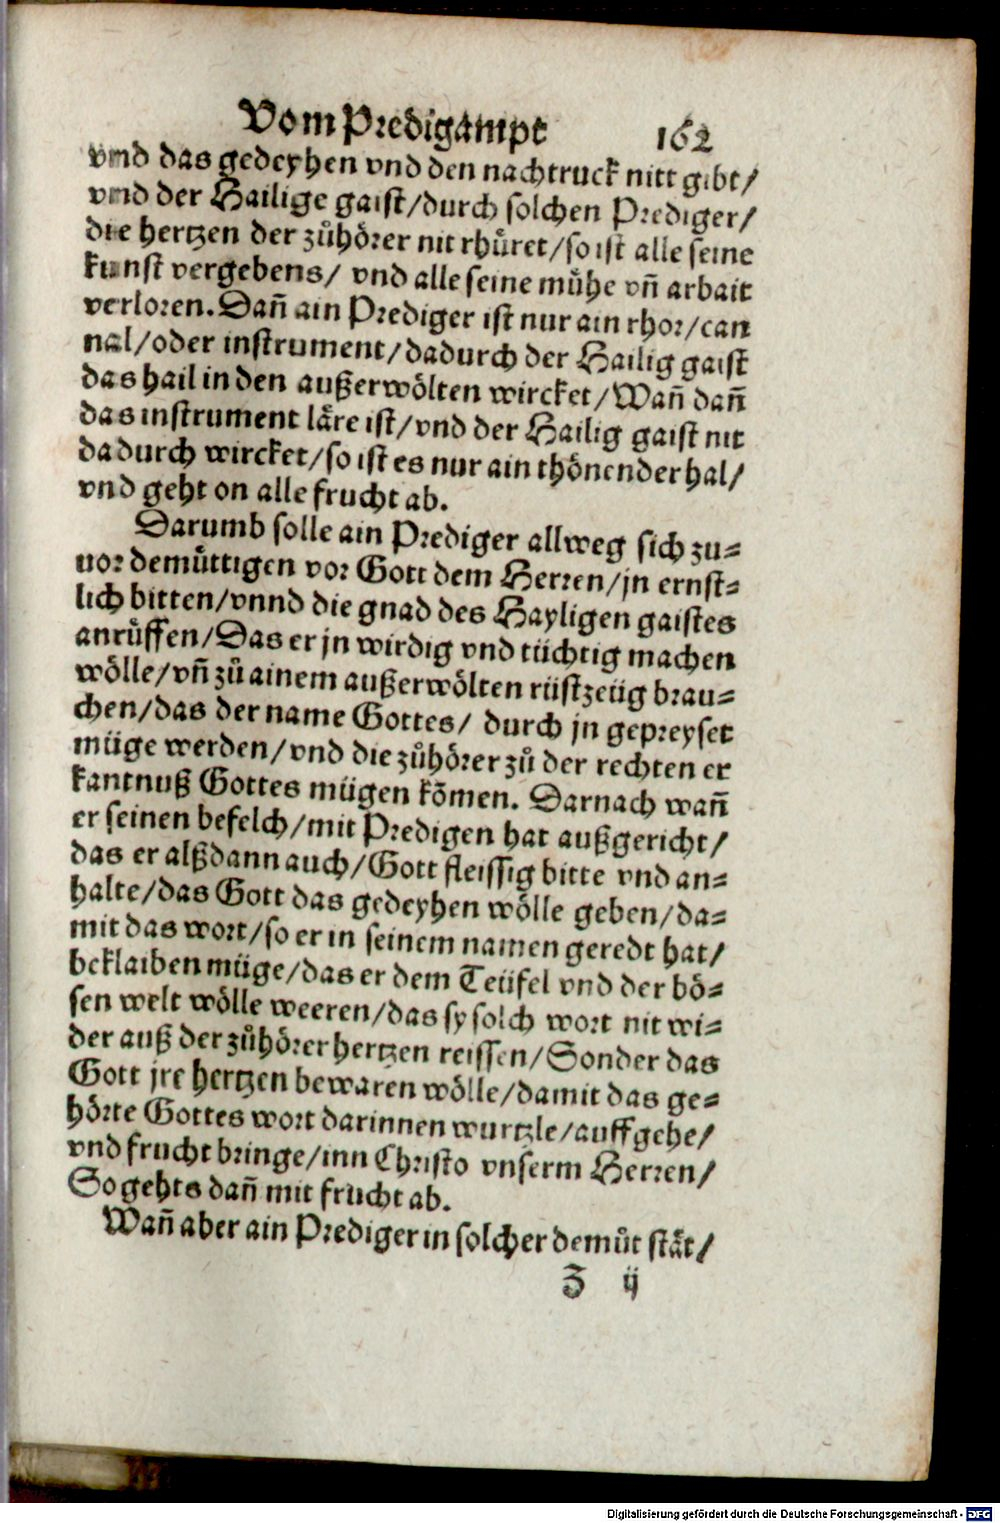 Vom Predigampt 162
vnd das gedeyhen vnd den nachtruck nitt gibt/
vnd der Hailige gaist/durch solchen Prediger/
die hertzen der zůhörer nit rhůret/so ist alle seine
kunst vergebens/ vnd alle seine můhe vñ arbait
verloren. Dañ ain Prediger ist nur ain rhor/can
nal/oder instrument/dadurch der Hailig gaist
das hail in den außerwölten wircket/Wañ dañ
das instrument läre ist/vnd der Hailig gaist nit
dadurch wircket/so ist es nur ain thönender hal/
vnd geht on alle frucht ab.
Darumb solle ain Prediger allweg sich zu=
uor demůttigen vor Gott dem Herren/jn ernst=
lich bitten/vnnd die gnad des Hayligen gaistes
anrůffen/Das er jn wirdig vnd tüchtig machen
wölle/vñ zů ainem außerwölten rüstzeüg brau=
chen/das der name Gottes/ durch jn gepreyset
müge werden/vnd die zůhörer zů der rechten er
kantnuß Gottes mügen kõmen. Darnach wañ
er seinen befelch/mit Predigen hat außgericht/
das er alßdann auch/Gott fleissig bitte vnd an=
halte/das Gott das gedeyhen wölle geben/da=
mit das wort/so er in seinem namen geredt hat/
beklaiben müge/das er dem Teüfel vnd der bö=
sen welt wölle weeren/das sy solch wort nit wi=
der auß der zůhörer hertzen reissen/Sonder das
Gott jre hertzen bewaren wölle/damit das ge=
hörte Gottes wort darinnen wurtzle/auffgehe/
vnd frucht bringe/inn Christo vnserm Herren/
So gehts dañ mit frucht ab.
Wañ aber ain Prediger in solcher demůt stät/
Z ij
Digitalisierung gefördert durch die Deutsche Forschungsgemeinschaft - DFG